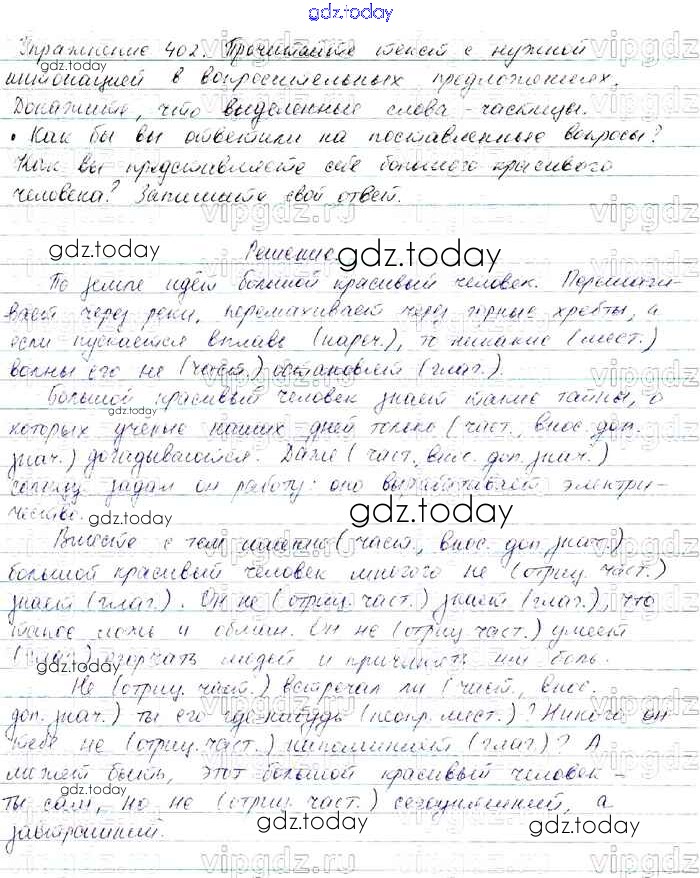 gdz.today
Упражнение 402. Прочитайте текст с нужной
интонацией в вопросительных предложениях.
Докажите, что выделенные слова - частицы.
• Как бы вы ответили на поставленные вопросы?
Как вы представляете себе большого красивого
человека? Запишите свой ответ.
gdz.today Решение. gdz.today
По земле идёт большой красивый человек. Перешаги-
вает через реки, перемахивает через горные хребты, а
если пускается вплавь (нареч.), то никакие (мест.)
волны его не (част.) остановят (глаг.).
Большой красивый человек знает такие тайны, о
gdz.today
которых учёные наших дней только (част., внос. доп.
знач.) догадываются. Даже (част., внос. доп. знач.)
солнцу задал он работу: оно вырабатывает электри-
чество.
gdz.today
gdz.today
Вместе с тем именно (част., внос. доп. знач.)
большой красивый человек многого не (отриц. част.)
знает (глаг.). Он не (отриц. част.) знает (глаг.), что
такое ложь и обман. Он не (отриц. част.) умеет
(глаг.) огорчать людей и причинять им боль.
gdz.today
Не (отриц. част.) встречал ли (част., внос.
доп. знач.) ты его где-нибудь (неопр. мест.)? Никого он
тебе не (отриц. част.) напоминает (глаг.)? А
может быть, этот большой красивый человек -
ты сам, но не (отриц. част.) сегодняшний, а
завтрашний.
gdz.today
gdz.today
vipgdz.ru